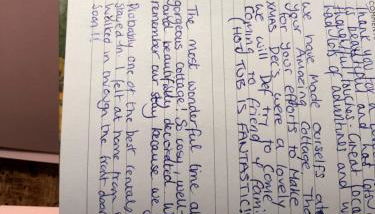 thank you for a
is beautiful and
thoughtful touches. Great loca
had lots of adventures and w
we have made ourselves at
your Amazing Cottage. Tha
for your efforts to Make
xmas Dec's were a lovely
we will Def to come
coming to friend & fam
(HOT TUB IS FANTASTIC!
The most wonderful time a
gorgeous cottage! So cosy, well
and beautifully decorated. W
remember our stay because we
Probably one of the best rentals
stayed in. I felt at home from
walked in through the front door
soon!!